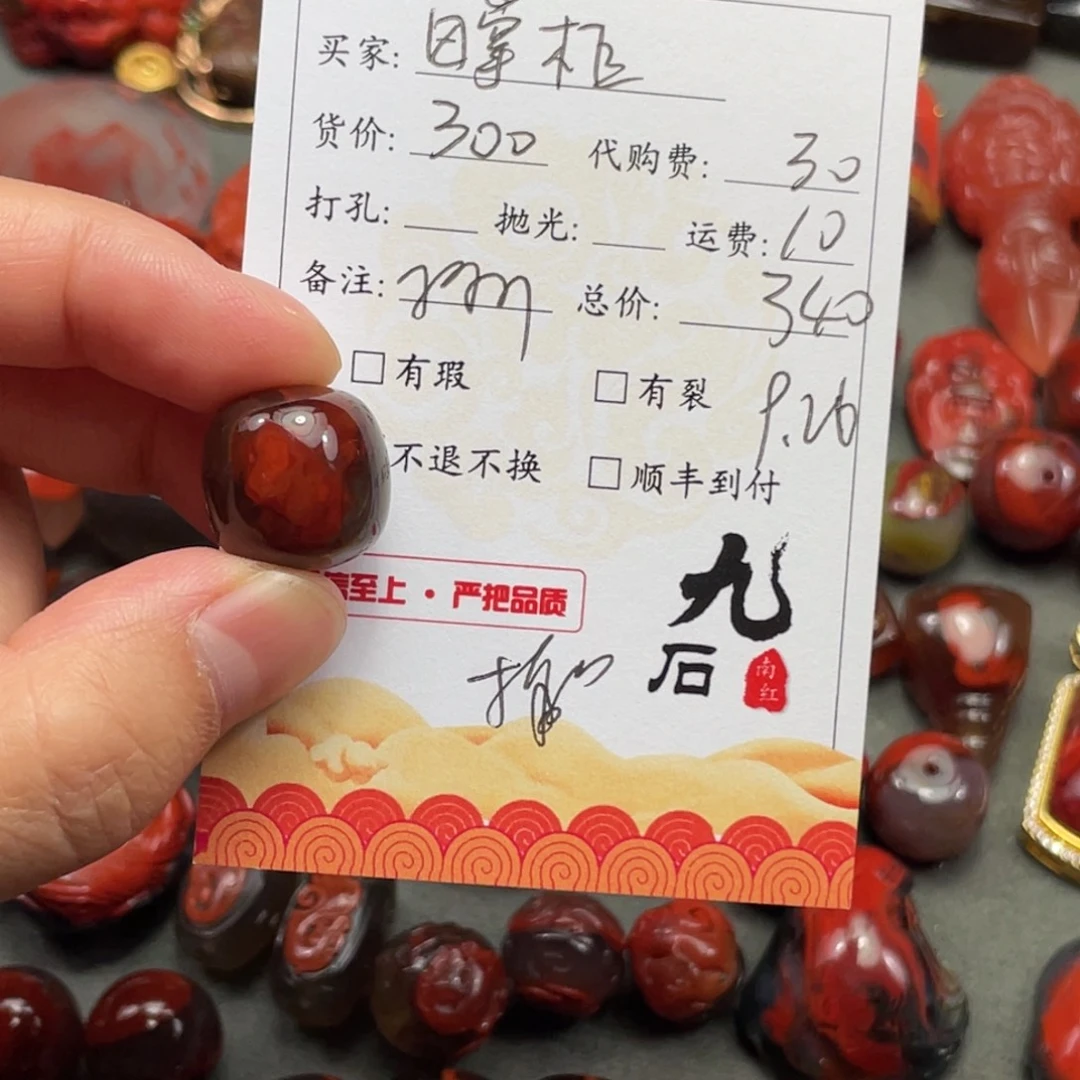 买家: 日掌柜
货价: 300 代购费: 30
打孔: 抛光: 运费: 10
备注: 总价: 340
□有瑕 □有裂 9.26
不退不换 □顺丰到付
信至上·严把品质
九
石
南
红